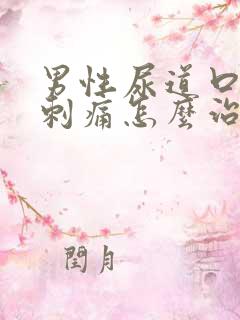 男性尿道口
刺痛怎麼治
閏月